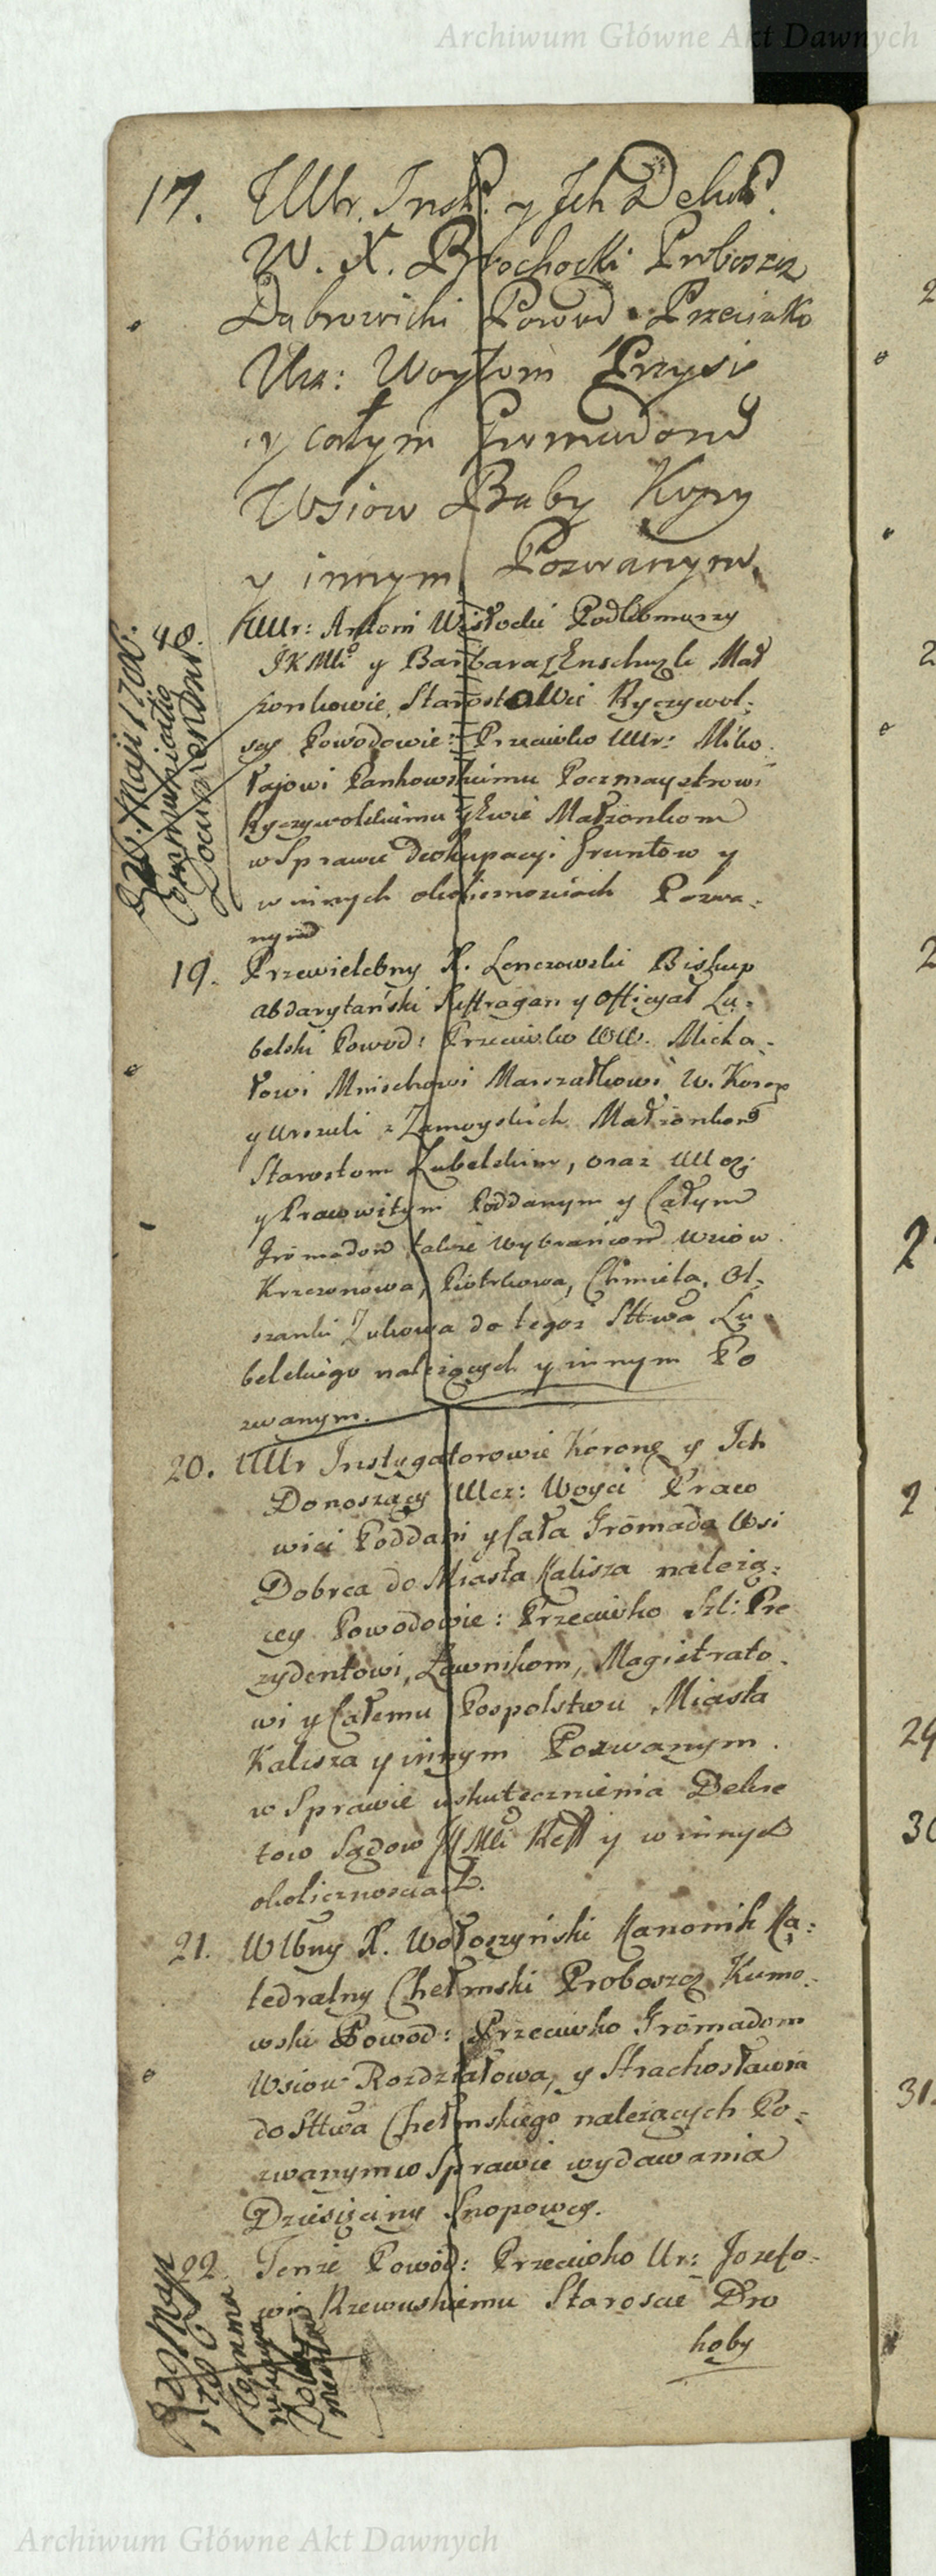 Archiwum Główne Akt Dawnych
17. UUr. Inst. y Ich Delat.
W. X. Brochocki Proboszcz
Dąbrowicki Powod Przeciwko
Urz: Woytom Przysię
y całym Gromadom
Wsiow Baby Kupy
y innym Pozwanym.
18. UUr: Antoni Wisłocki Podkomorzy
JKMci y Barbara z Małżonkowie Starostowie Ryczywol:
scy Powodowie: Przeciwko UUr: Miko:
łajowi Pankowskiemu Poczmaystrowi
Ryczywolskiemu y Ewie Małżonkom
w Sprawie Deokupacyi Gruntow y
w innych okolicznosciach Pozwa:
nym
19. Przewielebny X. Lenczowski Biskup
Abdarytański Suffragan y Officyał Lu:
belski Powod: Przeciwko WW. Micha:
łowi Mniszchowi Marszałkowi W. Koron
y Urszuli z Zamoyskich Małżonkom
Starostom Lubelskim, oraz UUcz:
y Prawowitym Poddanym y Całym
Gromadom także Wybrańcom Wsiow
Krzczonowa, Piotrkowa, Chmiela, Ol:
szanki Żukowa do tegoż Sttwa Lu
belskiego należących y innym Po
zwanym.
20. UUr Instygatorowie Koronę y Ich
Donoszący UUcz: Woyci Prawo
wici Poddani y Cała Gromada Wsi
Dobrca do Miasta Kalisza należą:
cey Powodowie: Przeciwko Szl: Pre
zydentowi, Ławnikom, Magistrato:
wi y Całemu Pospolstwu Miasta
Kalisza y innym Pozwanym.
w Sprawie uskutecznienia Dekre
tow Sądow JKMci Reff y w innych
okolicznosciach.
21. Wlbny X. Wołoszyński Kanonik Ka:
tedralny Chełmski Proboszcz Kumo:
wski Powod: Przeciwko Gromadom
Wsiow Rozdziałowa, y Strachosławia
do Sttwa Chełmskiego należących Po:
zwanym w Sprawie wydawania
Dziesięciny Snopowey.
22. Tenże Powod: Przeciwko Ur: Jozefo:
wi Rzewuskiemu Staroscie Dro
hoby
Archiwum Główne Akt Dawnych